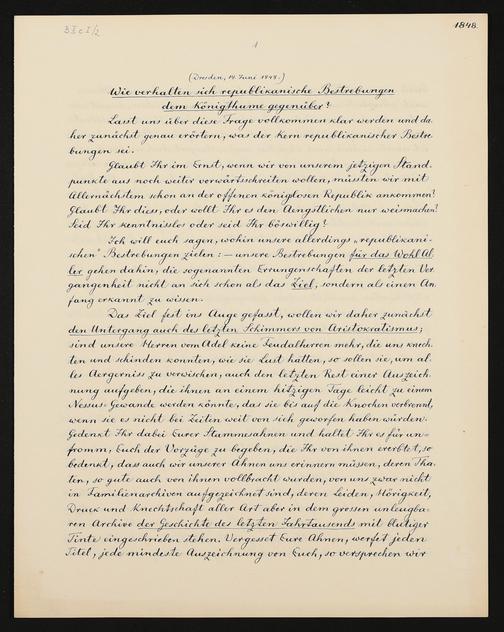 B II c I/2
1848.
1
(Dresden, 14. Juni 1848.)
Wie verhalten sich republikanische Bestrebungen
dem Königthume gegenüber?
Lasst uns über diese Frage vollkommen klar werden und da,
her zunächst genau erörtern, was der Kern republikanischer Bestre,
bungen sei.
Glaubt Ihr im Ernst, wenn wir von unserem jetzigen Stand,
punkte aus noch weiter vorwärtsschreiten wollen, müssten wir mit
Allernächstem schon an der offenen königlosen Republik ankommen?
Glaubt Ihr dies, oder wollt Ihr es den Aengstlichen nur weismachen?
Seid Ihr kenntnisslos oder seid Ihr böswillig?
Ich will euch sagen, wohin unsere allerdings „republikani-
schen" Bestrebungen zielen: — unsere Bestrebungen für das Wohl Al,
ler gehen dahin, die sogenannten Errungenschaften der letzten Ver,
gangenheit nicht an sich schon als das Ziel, sondern als einen An,
fang erkannt zu wissen.
Das Ziel fest ins Auge gefasst, wollen wir daher zunächst
den Untergang auch des letzten Schimmers von Aristokratismus;
sind unsere Herren vom Adel keine Feudalherren mehr, die uns knech,
ten und schinden konnten, wie sie Lust hatten, so sollen sie, um al,
les Aergerniss zu verwischen, auch den letzten Rest einer Auszeich,
nung aufgeben, die ihnen an einem hitzigen Tage leicht zu einem
Nessus-Gewande werden könnte, das sie bis auf die Knochen verbrennt,
wenn sie es nicht bei Zeiten weit von sich geworfen haben würden.
Gedenkt Ihr dabei Eurer Stammesahnen und haltet Ihr es für un-
fromm, Euch der Vorzüge zu begeben, die Ihr von ihnen ererbtet, so
bedenkt, dass auch wir unserer Ahnen uns erinnern müssen, deren Tha,
ten, so gute auch von ihnen vollbracht wurden, von uns zwar nicht
in Familienarchiven aufgezeichnet sind, deren Leiden, Hörigkeit,
Druck und Knechtschaft aller Art aber in dem grossen unleugba-
ren Archive der Geschichte des letzten Jahrtausends mit blutiger
Tinte eingeschrieben stehen. Vergesset Eure Ahnen, werfet jeden
Titel, jede mindeste Auszeichnung von Euch, so versprechen wir